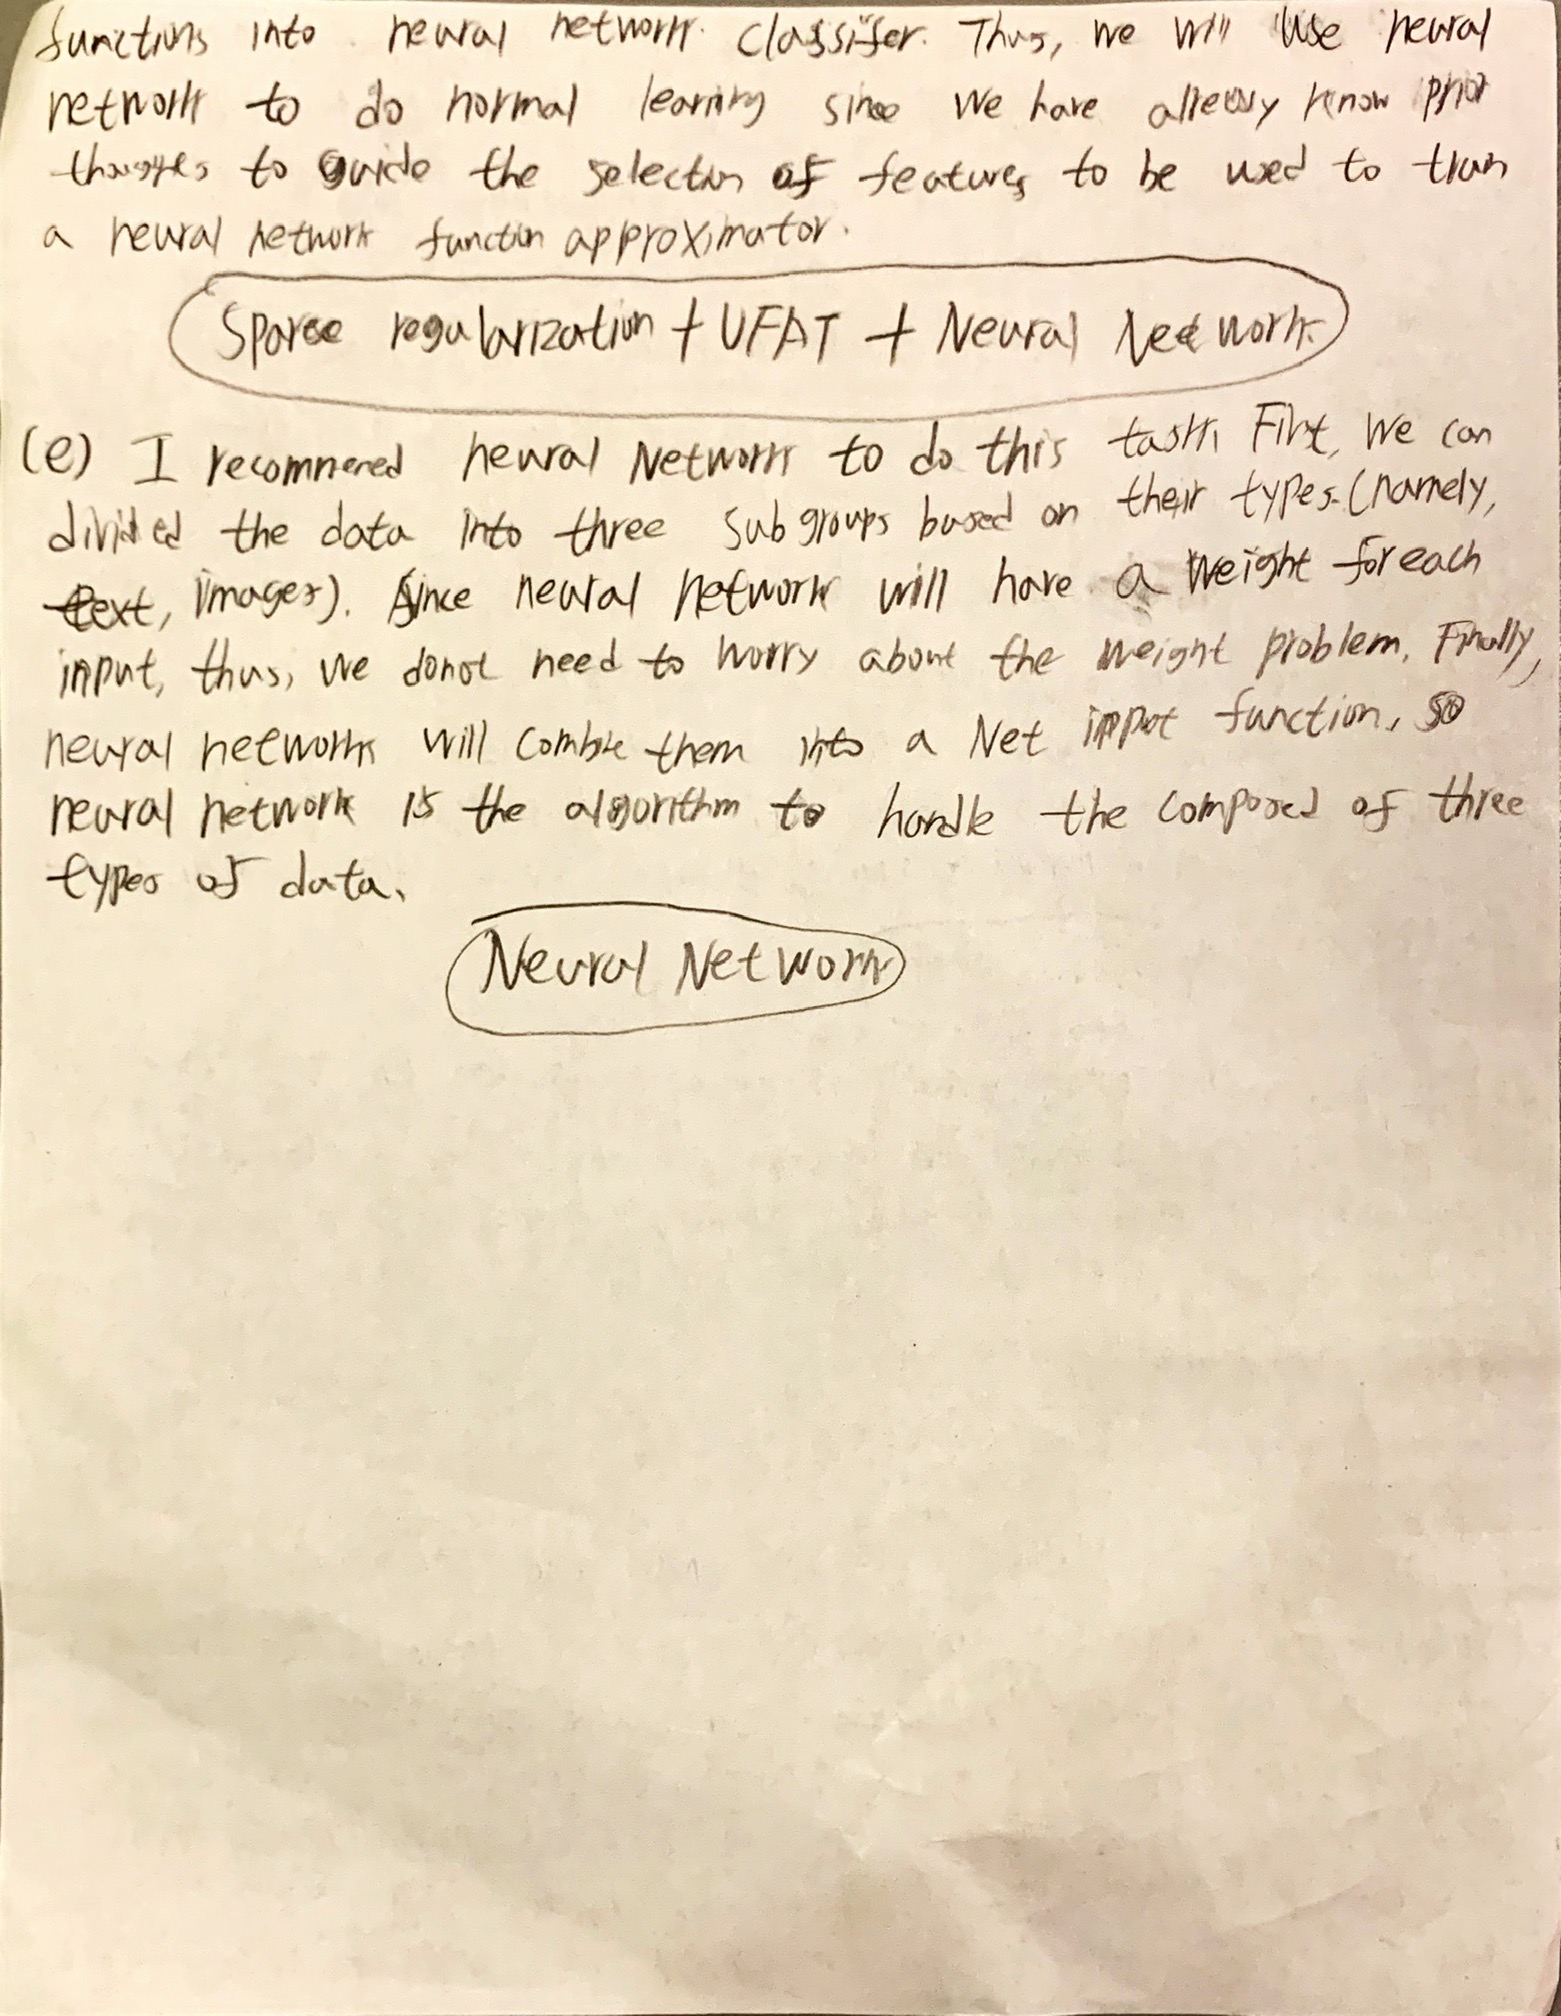 functions into neural network classifer. Thus, we will use neural
network to do normal learning since we have already know prior
thoughts to guide the selection of features to be used to train
a neural network function approximator.
Sparse regularization + UFAT + Neural Network
(e) I recommened neural Network to do this task. First, we can
divided the data into three subgroups based on their types. (namely,
text, images). Since neural network will have a weight for each
input, thus, we donot need to worry about the weight problem. Finally,
neural networks will combine them into a Net input function, so
neural network is the algorithm to handle the composed of three
types of data.
Neural Network